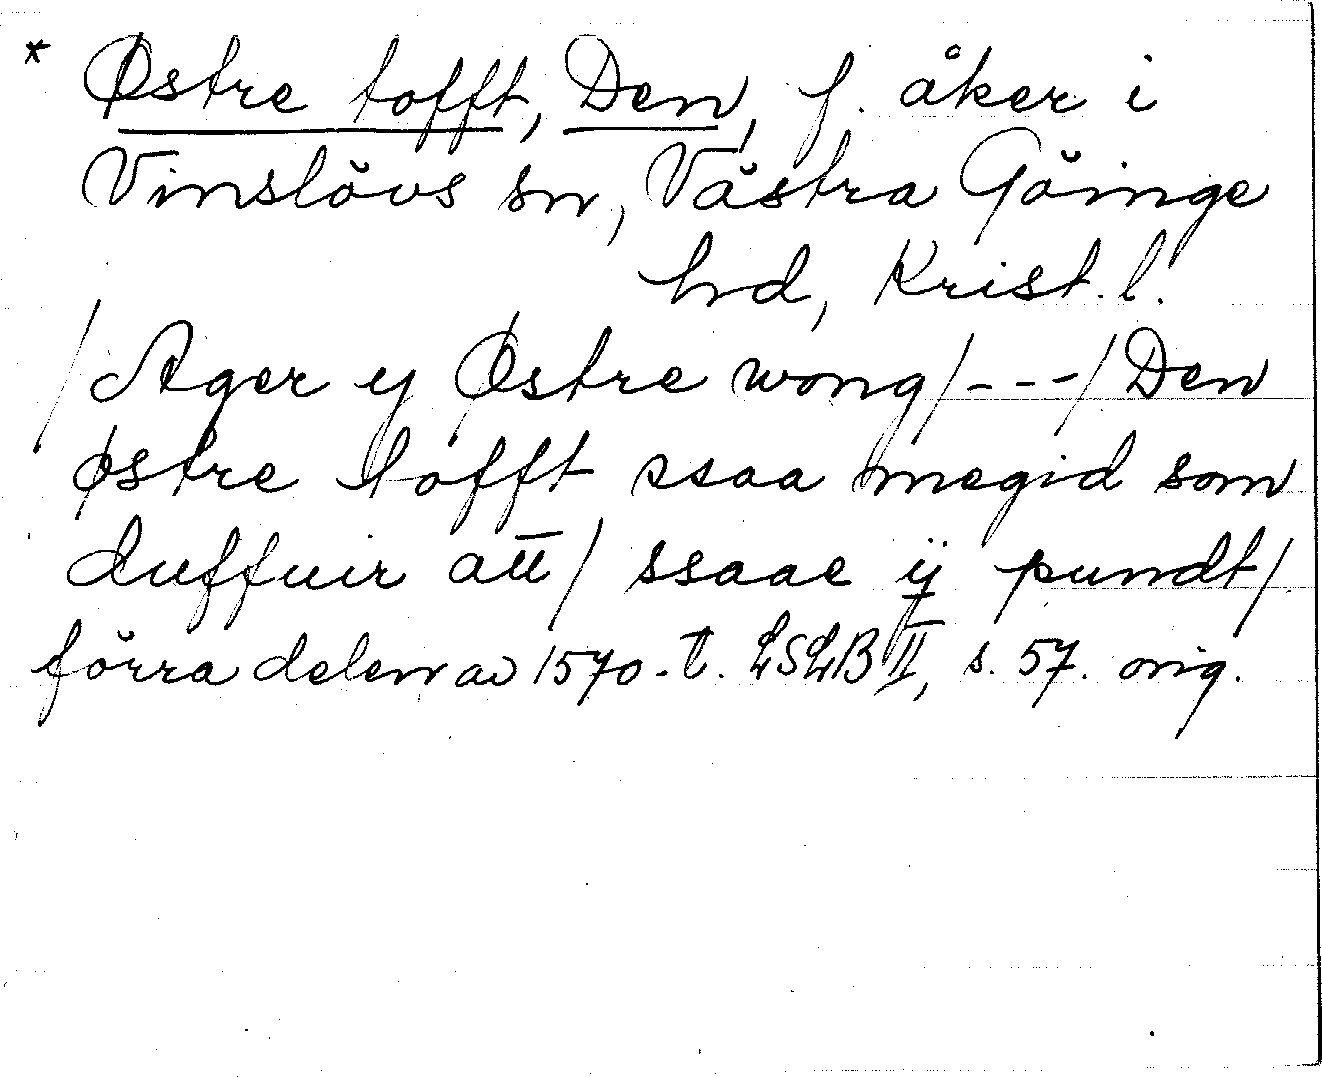 * Østre tofft, Den, f. åker i
Vinslövs sn, Västra Göinge
hrd, Krist. l.
/Ager y Østre wong/---/Den
østre tofft ssaa megid som
duffuir att/ ssaae ij pundt/
förra delen av 1570-t. LSLB II, s. 57. orig.